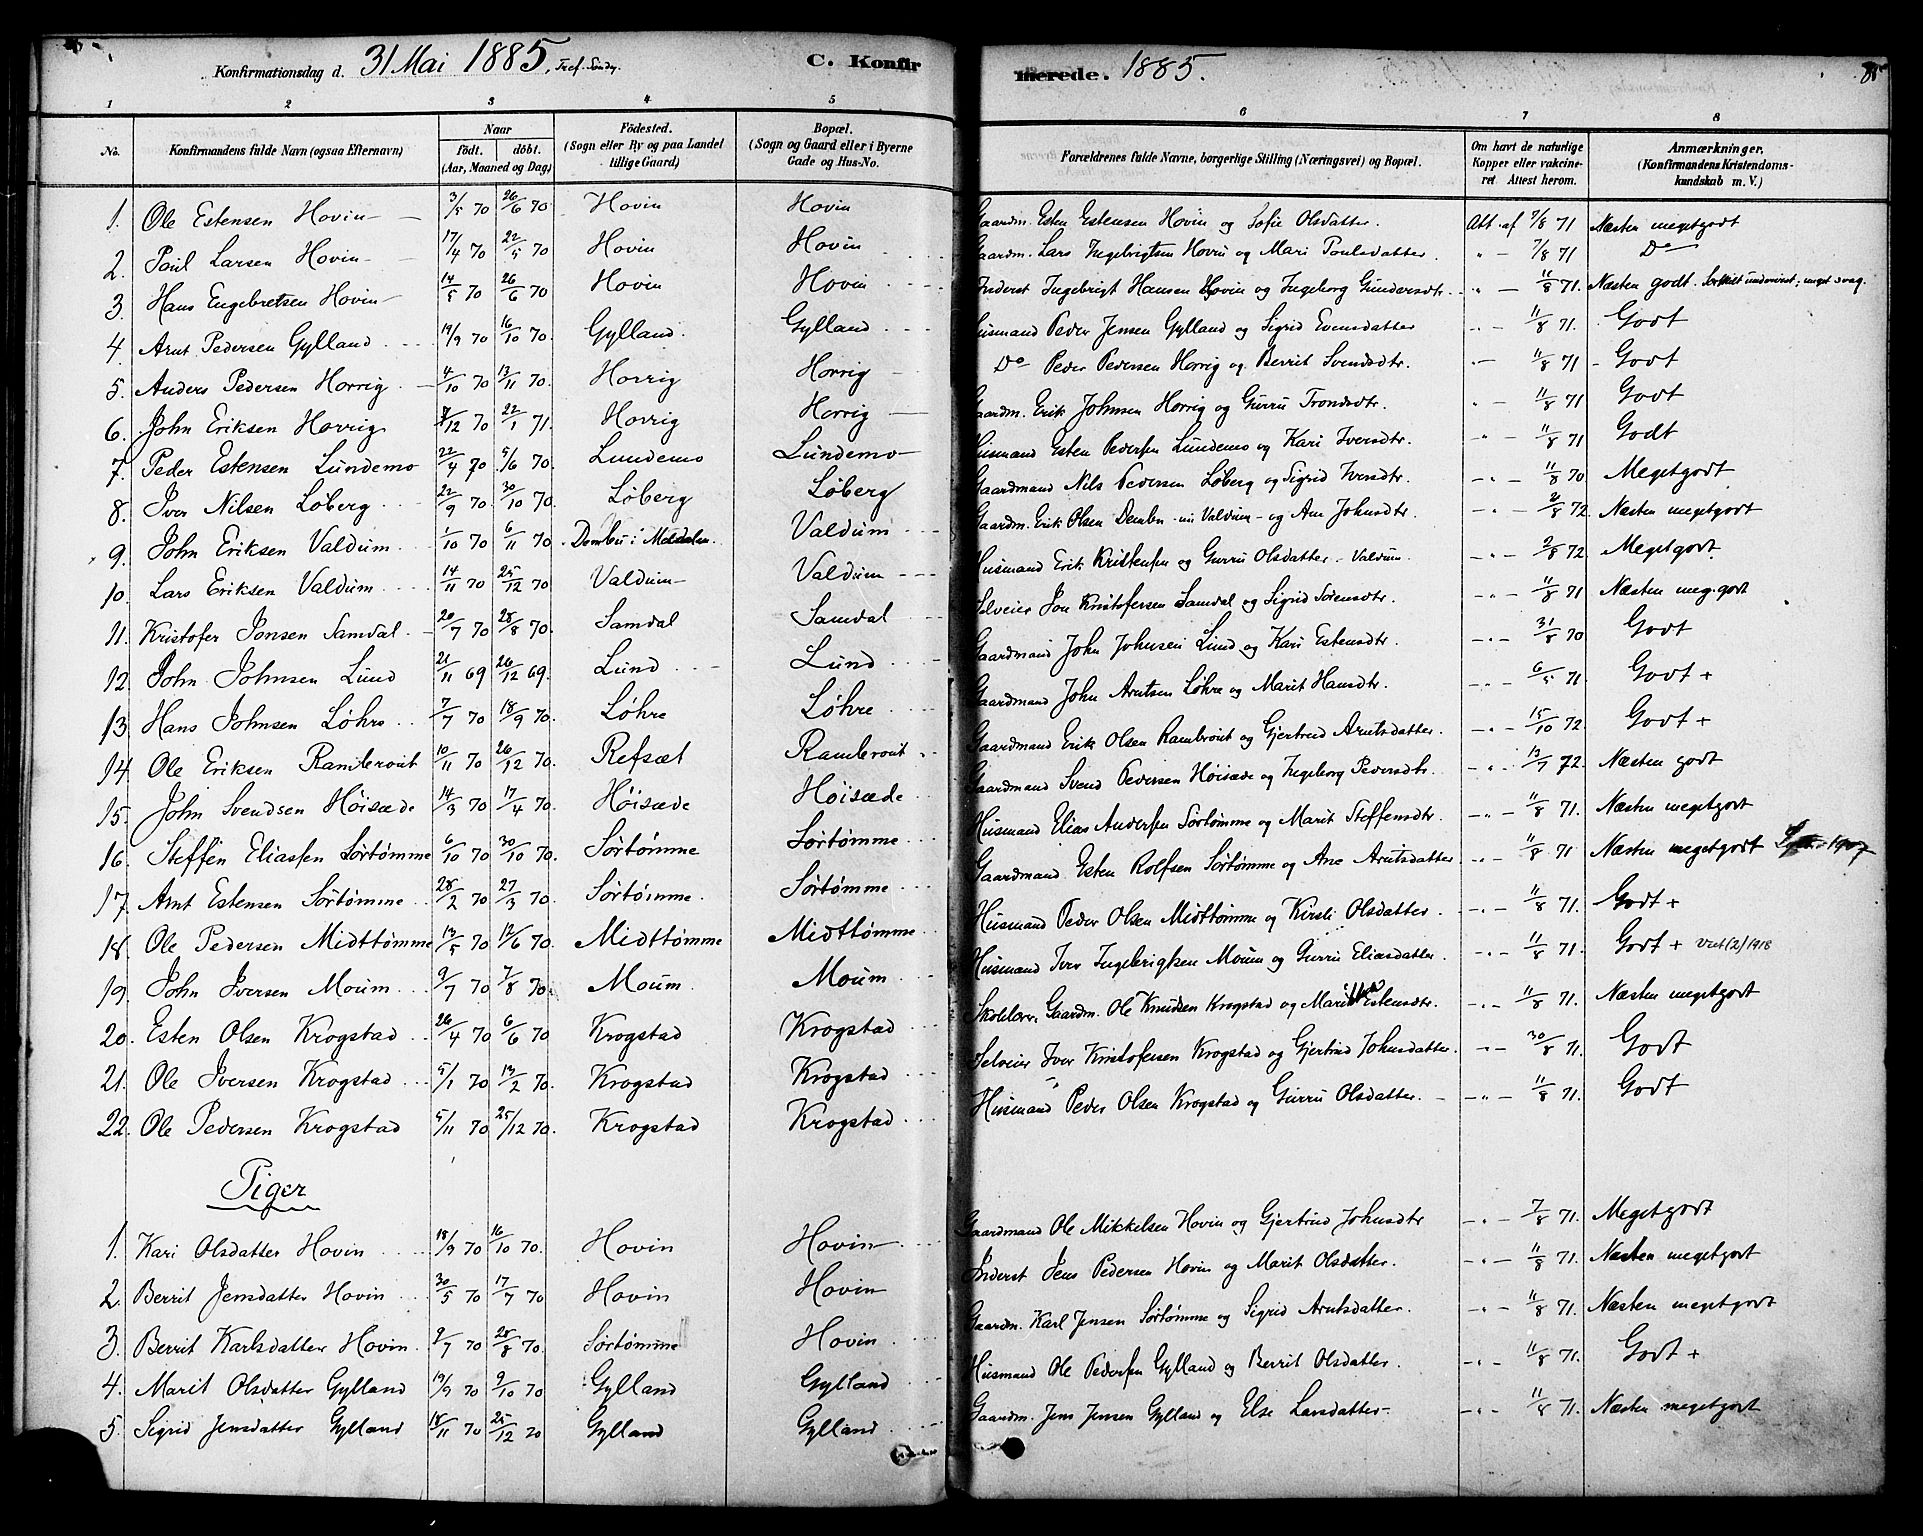 Konfirmationsdag d. 31 Mai 1885, Tref. Sondg. C. Konfirmerede. 1885. 85
1 2 3 4 5 6 7 8
No. Konfirmandens fulde Navn (ogsaa Efternavn) Naar födt. döbt. (Aar, Maaned og Dag) Födested. (Sogn eller By og paa Landet tillige Gaard) Bopæl. (Sogn og Gaard eller i Byerne Gade og Hus-No. Forældrenes fulde Navne, borgerlige Stilling (Næringsvei) og Bopæl. Om havt de naturlige Kopper eller vakcineret. Attest herom. Anmærkninger. (Konfirmandens Kristendomskundskab m. V.)
1. Ole Estensen Hovin 3/5 70 26/6 70 Hovin Hovin Gaardm. Esten Estensen Hovin og Sofie Olsdatter. Att. af 7/8 71 Næsten megetgodt
2. Paul Larsen Hovin 17/4 70 22/5 70 Hovin Hovin Gaardm. Lars Ingebrigtsen Hovin og Mari Paulsdatter. " - 7/8 71 Do
3. Hans Engebretsen Hovin 14/5 70 26/6 70 Hovin Hovin Inderst Ingebrigt Hansen Hovin og Ingeborg Gundersdtr. " - 11/8 71. Næsten godt. meget svag.
4. Arnt Pedersen Gylland 19/9 70 16/10 70. Gylland Gylland Husmand Peder Jensen Gylland og Sigrid Evensdatter " - 11/8 71. Godt
5. Anders Pedersen Horrig 4/10 70 13/11 70. Horrig Horrig Do Peder Pedersen Horrig og Berrit Svendsdtr. " - 11/8 71 Godt
6. John Eriksen Horrig 7/12 70 22/1 71. Horrig Horrig Gaardm. Erik Johnsen Horrig og Gurru Trondsdtr. " - 11/8 71 Godt
7. Peder Estensen Lundemo 22/4 70 5/6 70. Lundemo Lundemo Husmand Esten Pedersen Lundemo og Kari Iversdtr. " - 11/8 71 Godt
8. Iver Nilsen Løberg 22/9 70 30/10 70 Løberg Løberg Gaardmand Nils Pedersen Løberg og Sigrid Iversdtr. - " - 11/8 70 Megetgodt
9. John Eriksen Valdum 1/10 70 6/11 70 Dombu i Meldalen. Valdum Gaardm. Erik Olsen Dembu nu Valdum og Ane Johnsdtr. - " - 2/8 72 Næsten megetgodt
10. Lars Eriksen Valdum 14/11 70 25/12 70 Valdum Valdum Husmand Erik Kristensen og Gurru Olsdatter Valdum - " - 2/8 72. Megetgodt.
11. Kristofer Jonsen Samdal 20/7 70 28/8 70. Samdal Samdal Selveier Jon Kristofersen Samdal og Sigrid Sørensdtr. - " - 11/8 71 Næsten meg. godt
12. John Johnsen Lund 21/11 69 26/12 69. Lund Lund Gaardmand John Johnsen Lund og Kari Estensdtr. - " - 31/8 70 Godt
13. Hans Johnsen Løhre 7/7 70 18/9 70. Løhre Løhre Gaardmand John Arntsen Løhre og Marit Hansdtr. - " - 6/5 71. Godt +
14. Ole Eriksen Rambrout 10/11 70 26/12 70. Refsæt Rambrout Gaardmand Erik Olsen Rambrout og Gjertrud Arntsdatter. - " - 15/10 72. Godt +
15. John Svendsen Høisæde 14/3 70 17/4 70. Høisæde Høisæde Gaardmand Svend Pedersen Høisæde og Ingeborg Pedersdtr. - " 13/7 72. Næsten godt
16. Steffen Eliassen Sørtømme 6/10 70 30/10 70. Sørtømme Sørtømme Husmand Elias Andersen Sørtømme og Marit Steffensdtr. - " - 11/8 71. Næsten megetgodt
17. Arnt Estensen Sørtømme 28/2 70 27/3 70. Sørtømme Sørtømme Gaardmand Esten Rolfsen Sørtømme og Ane Arntsdatter - " - 11/8 71 Næsten megetgodt 1907
18. Ole Pedersen Midttømme 13/5 70 12/6 70. Midttømme Midttømme Husmand Peder Olsen Midttømme og Kirsti Olsdatter. - " - 11/8 71. Godt +
19. John Iversen Moum 9/7 70 7/8 70. Moum Moum Husmand Iver Ingebrigtsen Moum og Gurru Eliasdatter - " - 11/8 71. Godt + 1918
20. Esten Olsen Krogstad 26/4 70 6/6 70 Krogstad Krogstad Skolelærer Gaardm. Ole Knudsen Krogstad og Marit Estensdtr. - " - 11/8 71. Næsten megetgodt
21. Ole Iversen Krogstad 5/1 70 13/2 70. Krogstad Krogstad Selveier Iver Kristofersen Krogstad og Gjertrud Johnsdatter. " - 30/8 71. Godt
22. Ole Pedersen Krogstad 5/11 70 25/12 70. Krogstad Krogstad Husmand Peder Olsen Krogstad og Gurru Olsdatter. - " - 11/8 71. Godt
Piger
1. Kari Olsdatter Hovin 18/9 70 16/10 70. Hovin Hovin Gaardmand Ole Mikkelsen Hovin og Gjertrud Johnsdtr - " - 7/8 71. Megetgodt
2. Berrit Jensdatter Hovin 30/5 70 17/7 70 Hovin Hovin Inderst Jens Pedersen Hovin og Marit Olsdatter. - " - 11/8 71. Næsten megetgodt
3. Berrit Karlsdatter Hovin 9/7 70 28/8 70. Sørtømme Hovin Gaardm. Karl Jensen Sørtømme og Sigrid Arntsdatter. - " - 11/8 71. Næsten megetgodt
4. Marit Olsdatter Gylland 19/9 70 9/10 70 Gylland Gylland Husmand Ole Pedersen Gylland og Berrit Olsdatter. - " - 11/8 71. Godt +
5. Sigrid Jensdatter Gylland 18/11 70 25/12 70 Gylland Gylland Gaardm. Jens Jensen Gylland og Else Larsdatter - " - 11/8 71. Næsten megetgodt